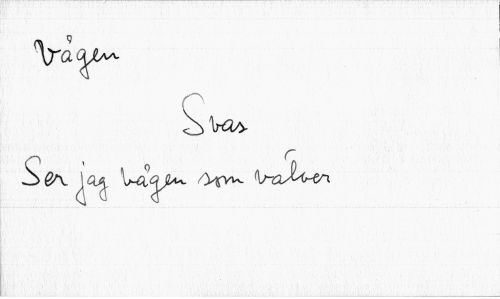 Vågen
Svas
Ser jag vågen som välver